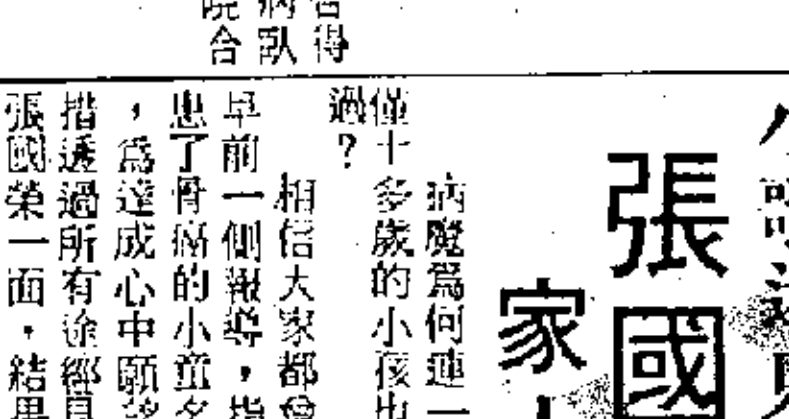 得
臥
合
張國
家
病魔為何連一
僅十多歲的小孩也
過？
相信大家都曾
早前一側報導，指
患了骨癌的小童名
，為達成心中願望
措透過所有途經見
張國榮一面，結果